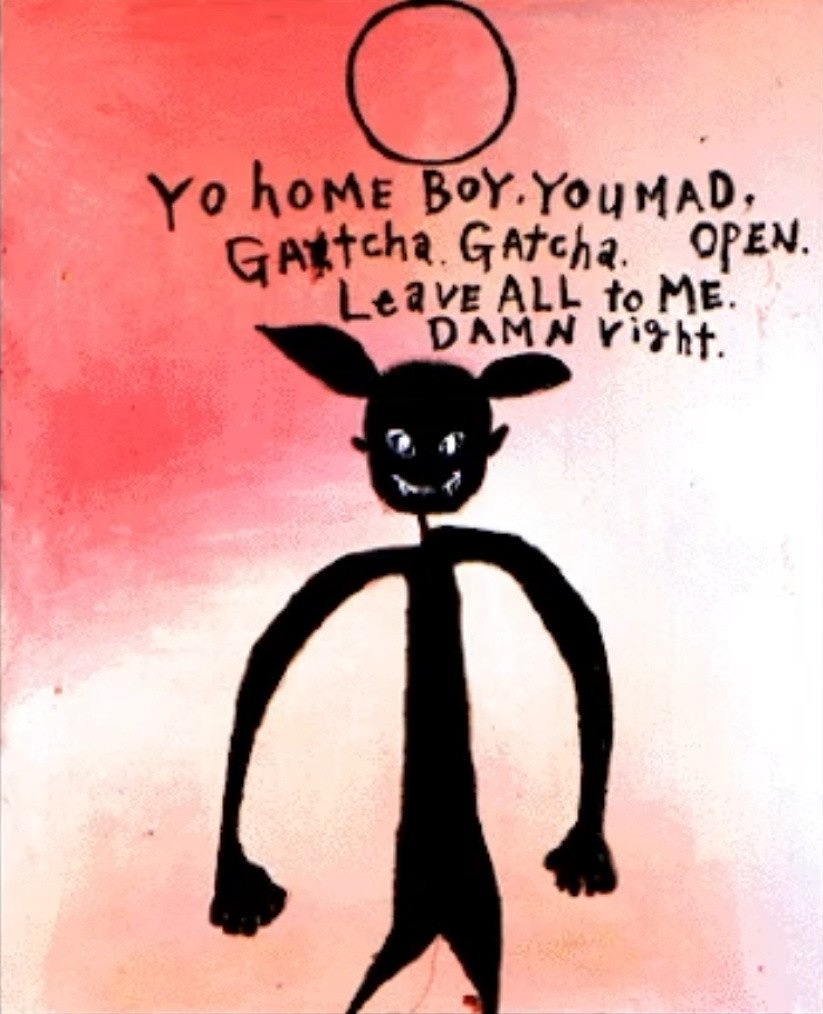 Yo hOME BOY. YOU MAD.
GAtcha. GAtcha. OPEN.
LeaVE ALL to ME.
DAMN right.